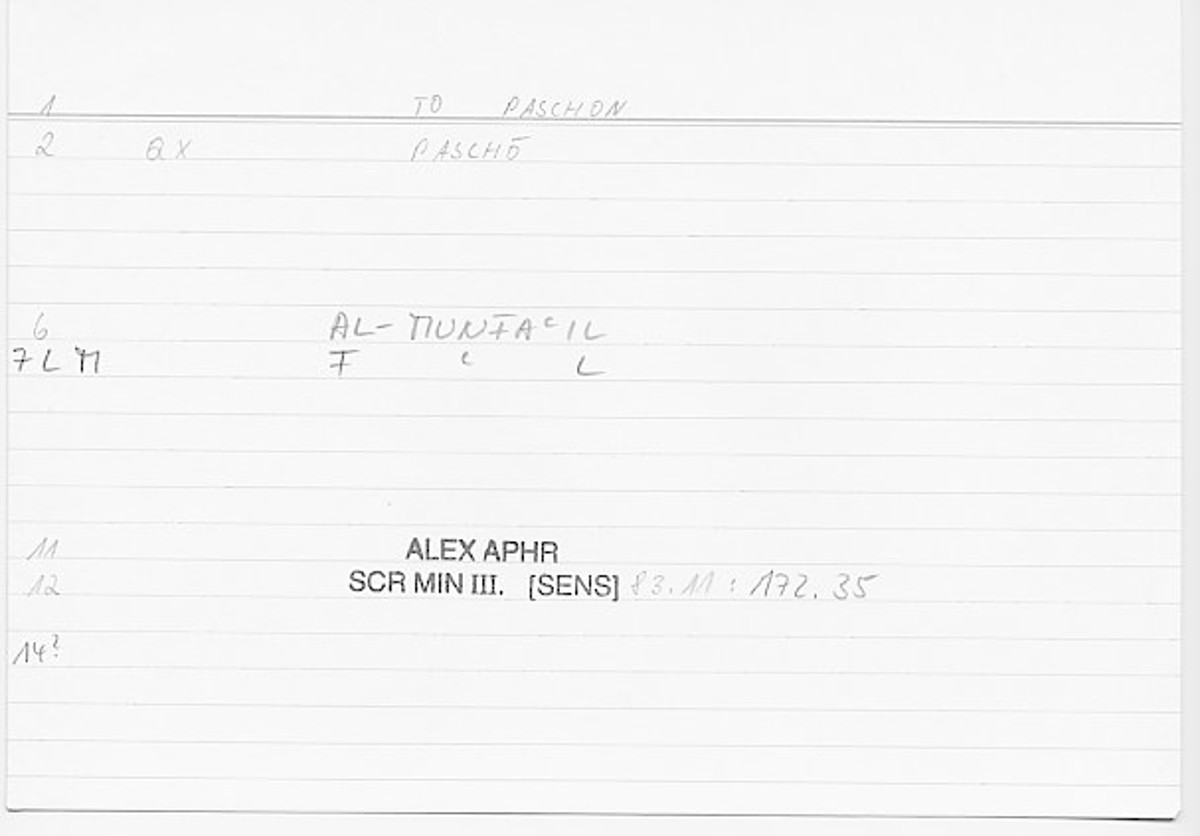 1 TO PASCHON
2 QX PASCHŌ
6 AL-MUNFAʿIL
7 L M F ʿ L
11 ALEX APHR
12 SCR MIN III. [SENS] 83.11 : 172.35
14?